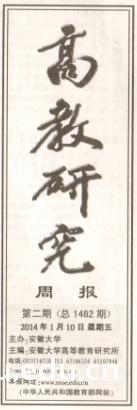 高教研究
周报
第二期（总1482期）
2014年1月10日 星期五
主办：安徽大学
主编：安徽大学高等教育研究所
本报网址：www.moe.edu.cn
（中华人民共和国教育部网站）